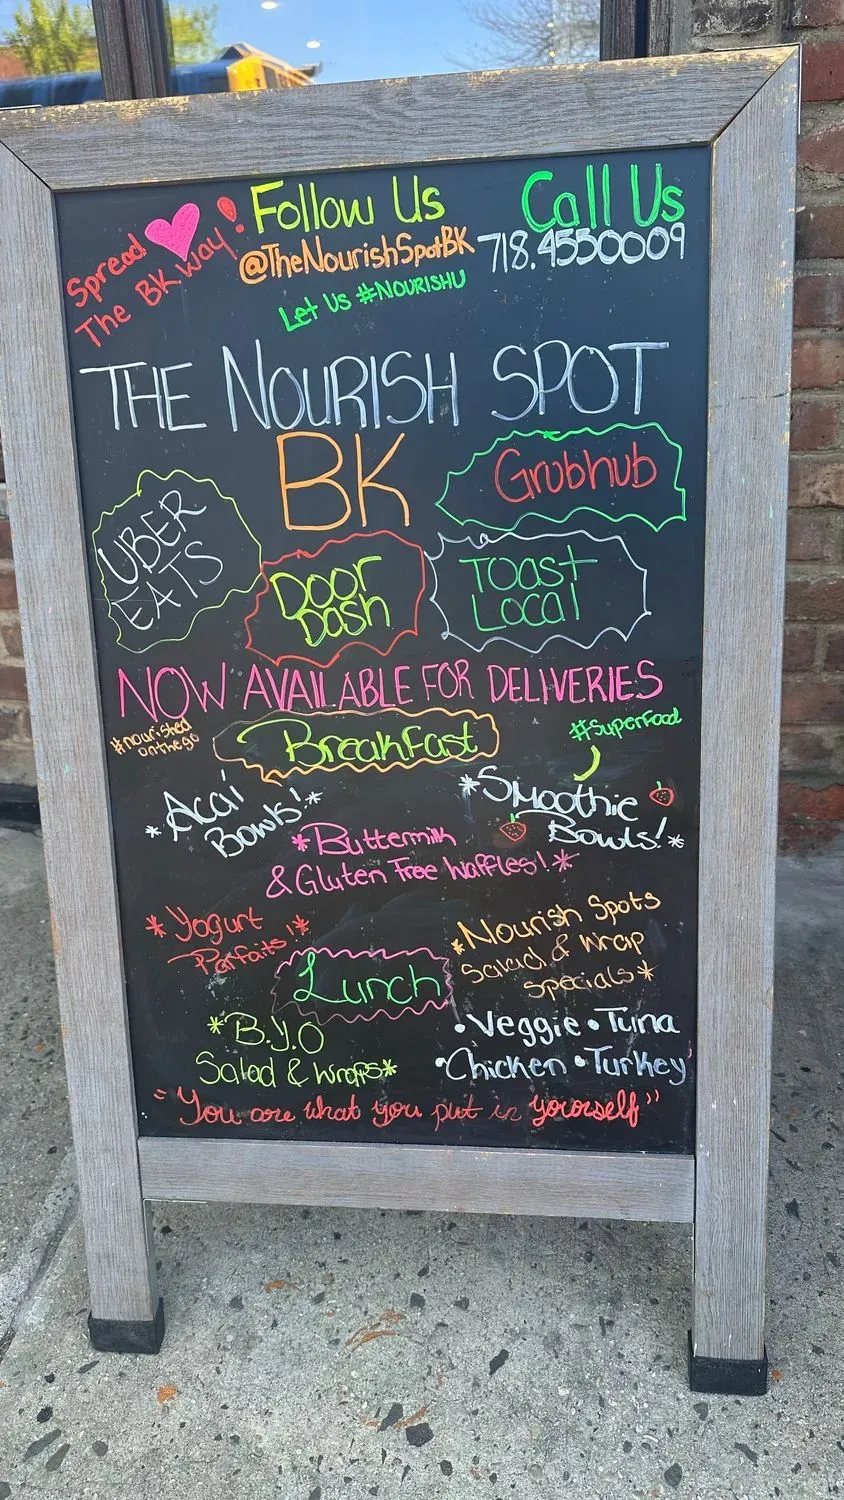 Spread
The BK way!
Follow Us
@TheNourishSpotBK
Let Us #NOURISHU
Call Us
718.4550009
THE NOURISH SPOT
BK
Grubhub
UBER
EATS
Door
Dash
Toast
Local
NOW AVAILABLE FOR DELIVERIES
#nourished
onthego
Breakfast
#SuperFood
*Acaí
Bowls!*
*Smoothie
Bowls!*
*Buttermilk
& Gluten Free Waffles!*
*Yogurt
Parfaits!*
*Nourish Spots
Salad & Wrap
Specials*
Lunch
*B.Y.O
Salad & Wraps*
•Veggie •Tuna
•Chicken •Turkey
"You are what you put in yourself"